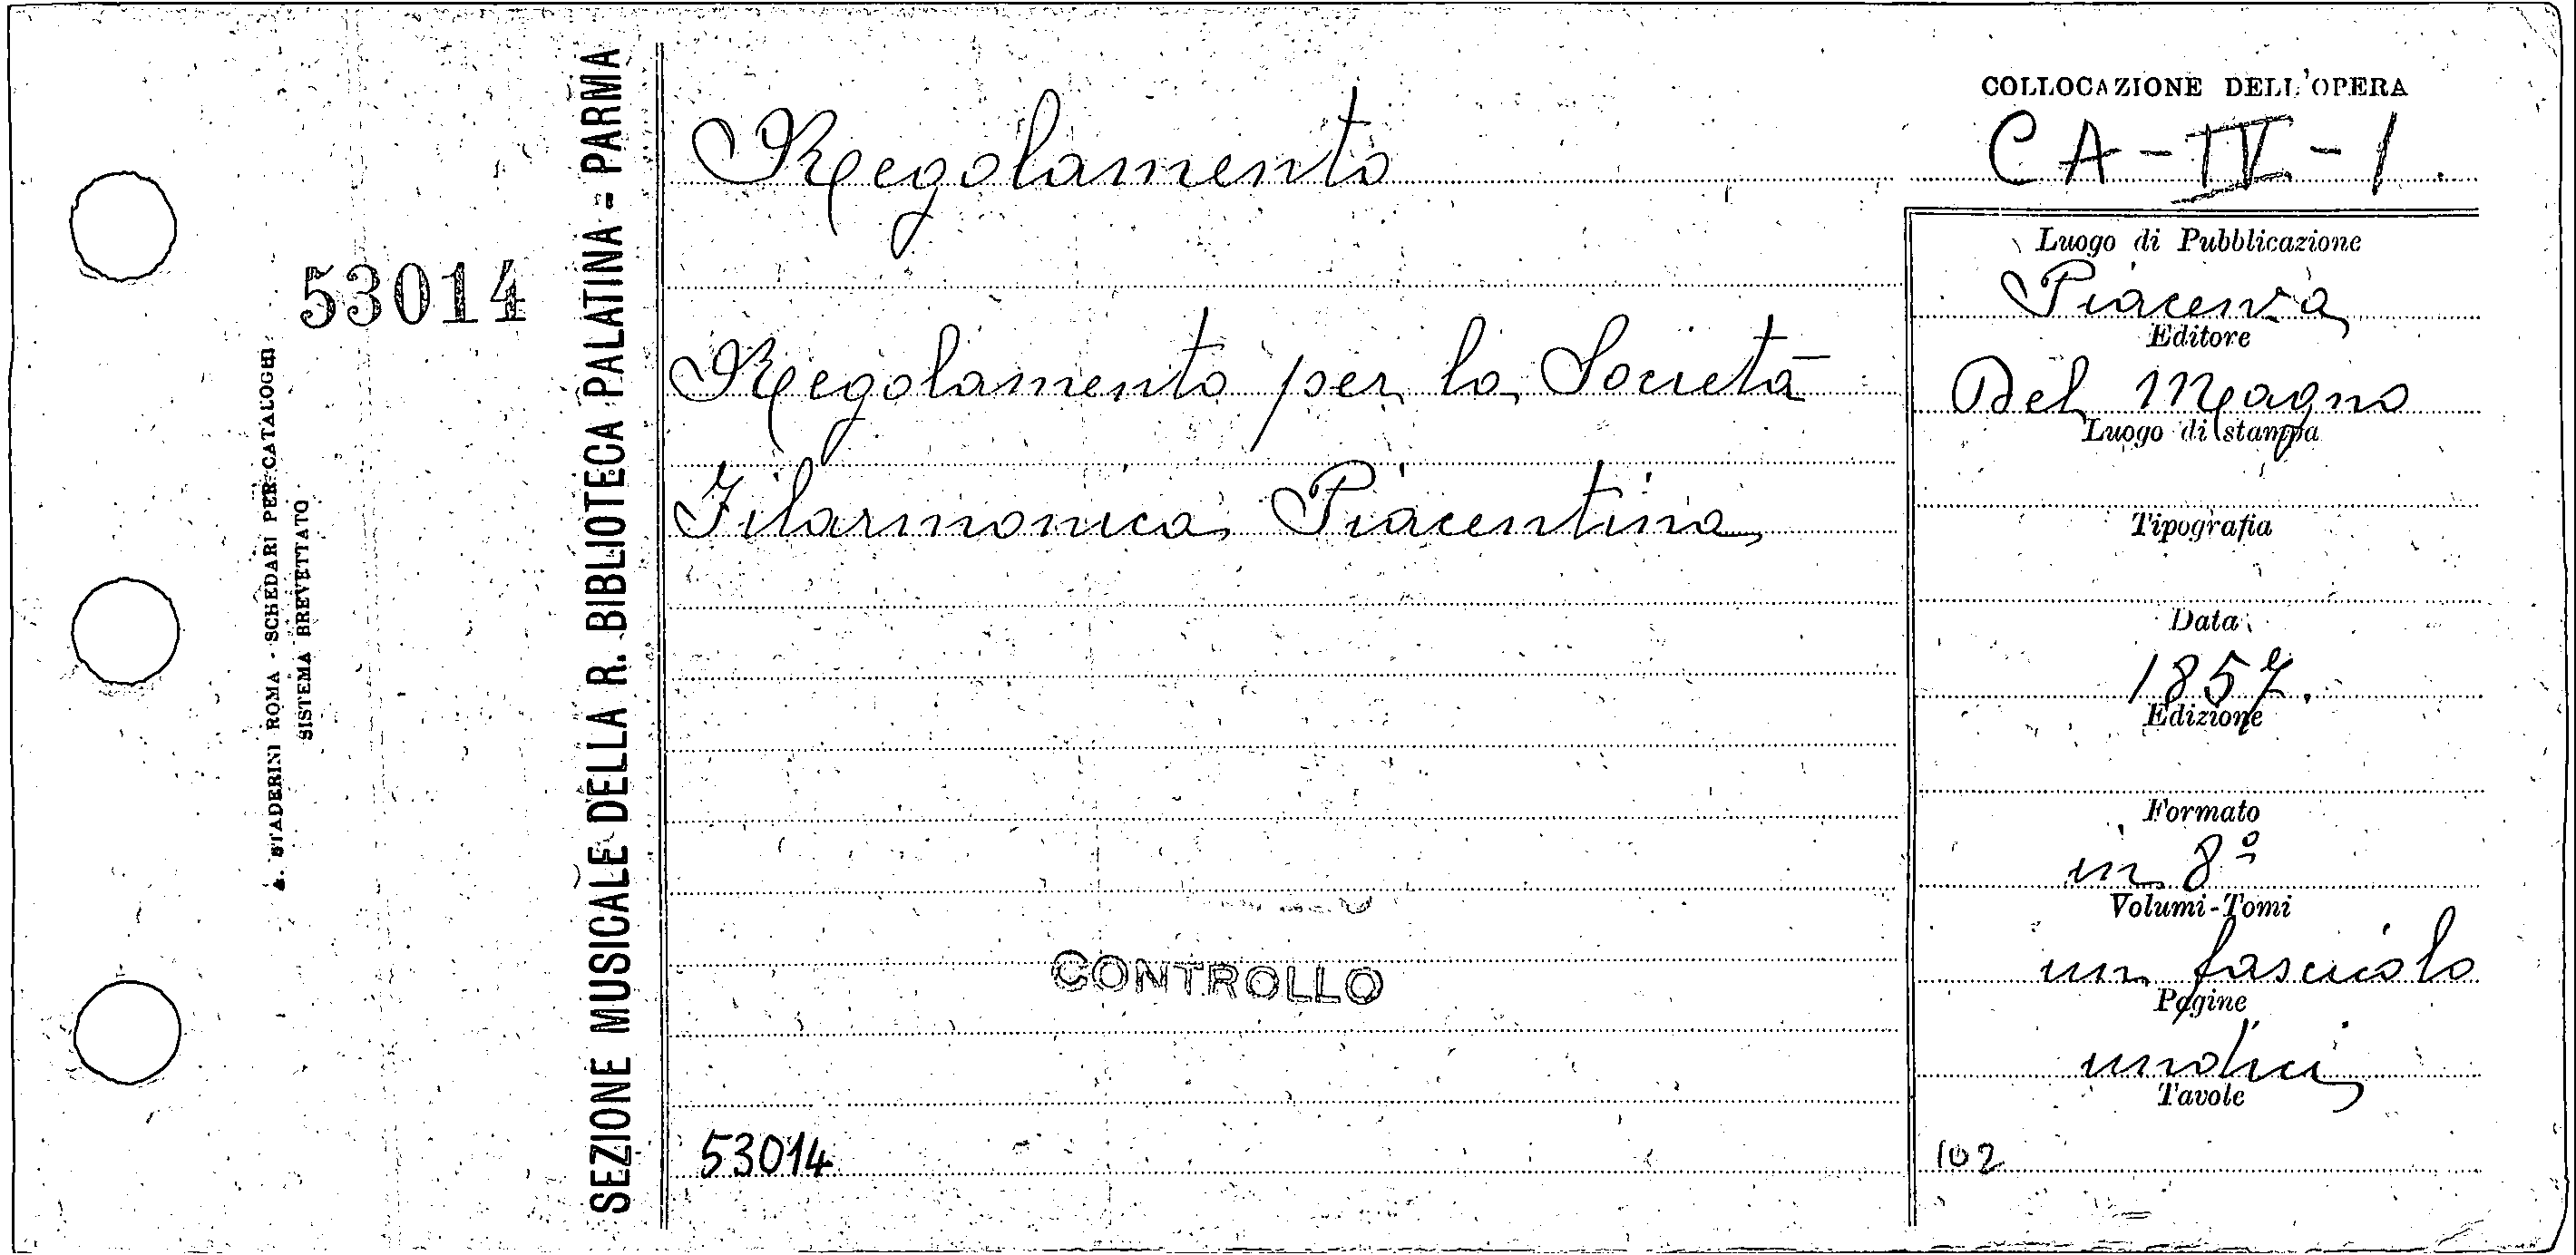 53014
A. STADERINI ROMA - SCHEDARI PER CATALOGHI
SISTEMA BREVETTATO
SEZIONE MUSICALE DELLA R. BIBLIOTECA PALATINA = PARMA
Regolamento
Regolamento per la Società
Filarmonica Piacentina
CONTROLLO
53014
COLLOCAZIONE DELL'OPERA
CA-IV-1.
Luogo di Pubblicazione
Piacenza
Editore
Del Magno
Luogo di stampa
Tipografia
Data
1857.
Edizione
Formato
in 8º
Volumi-Tomi
un fascicolo
Pagine
undici
Tavole
102